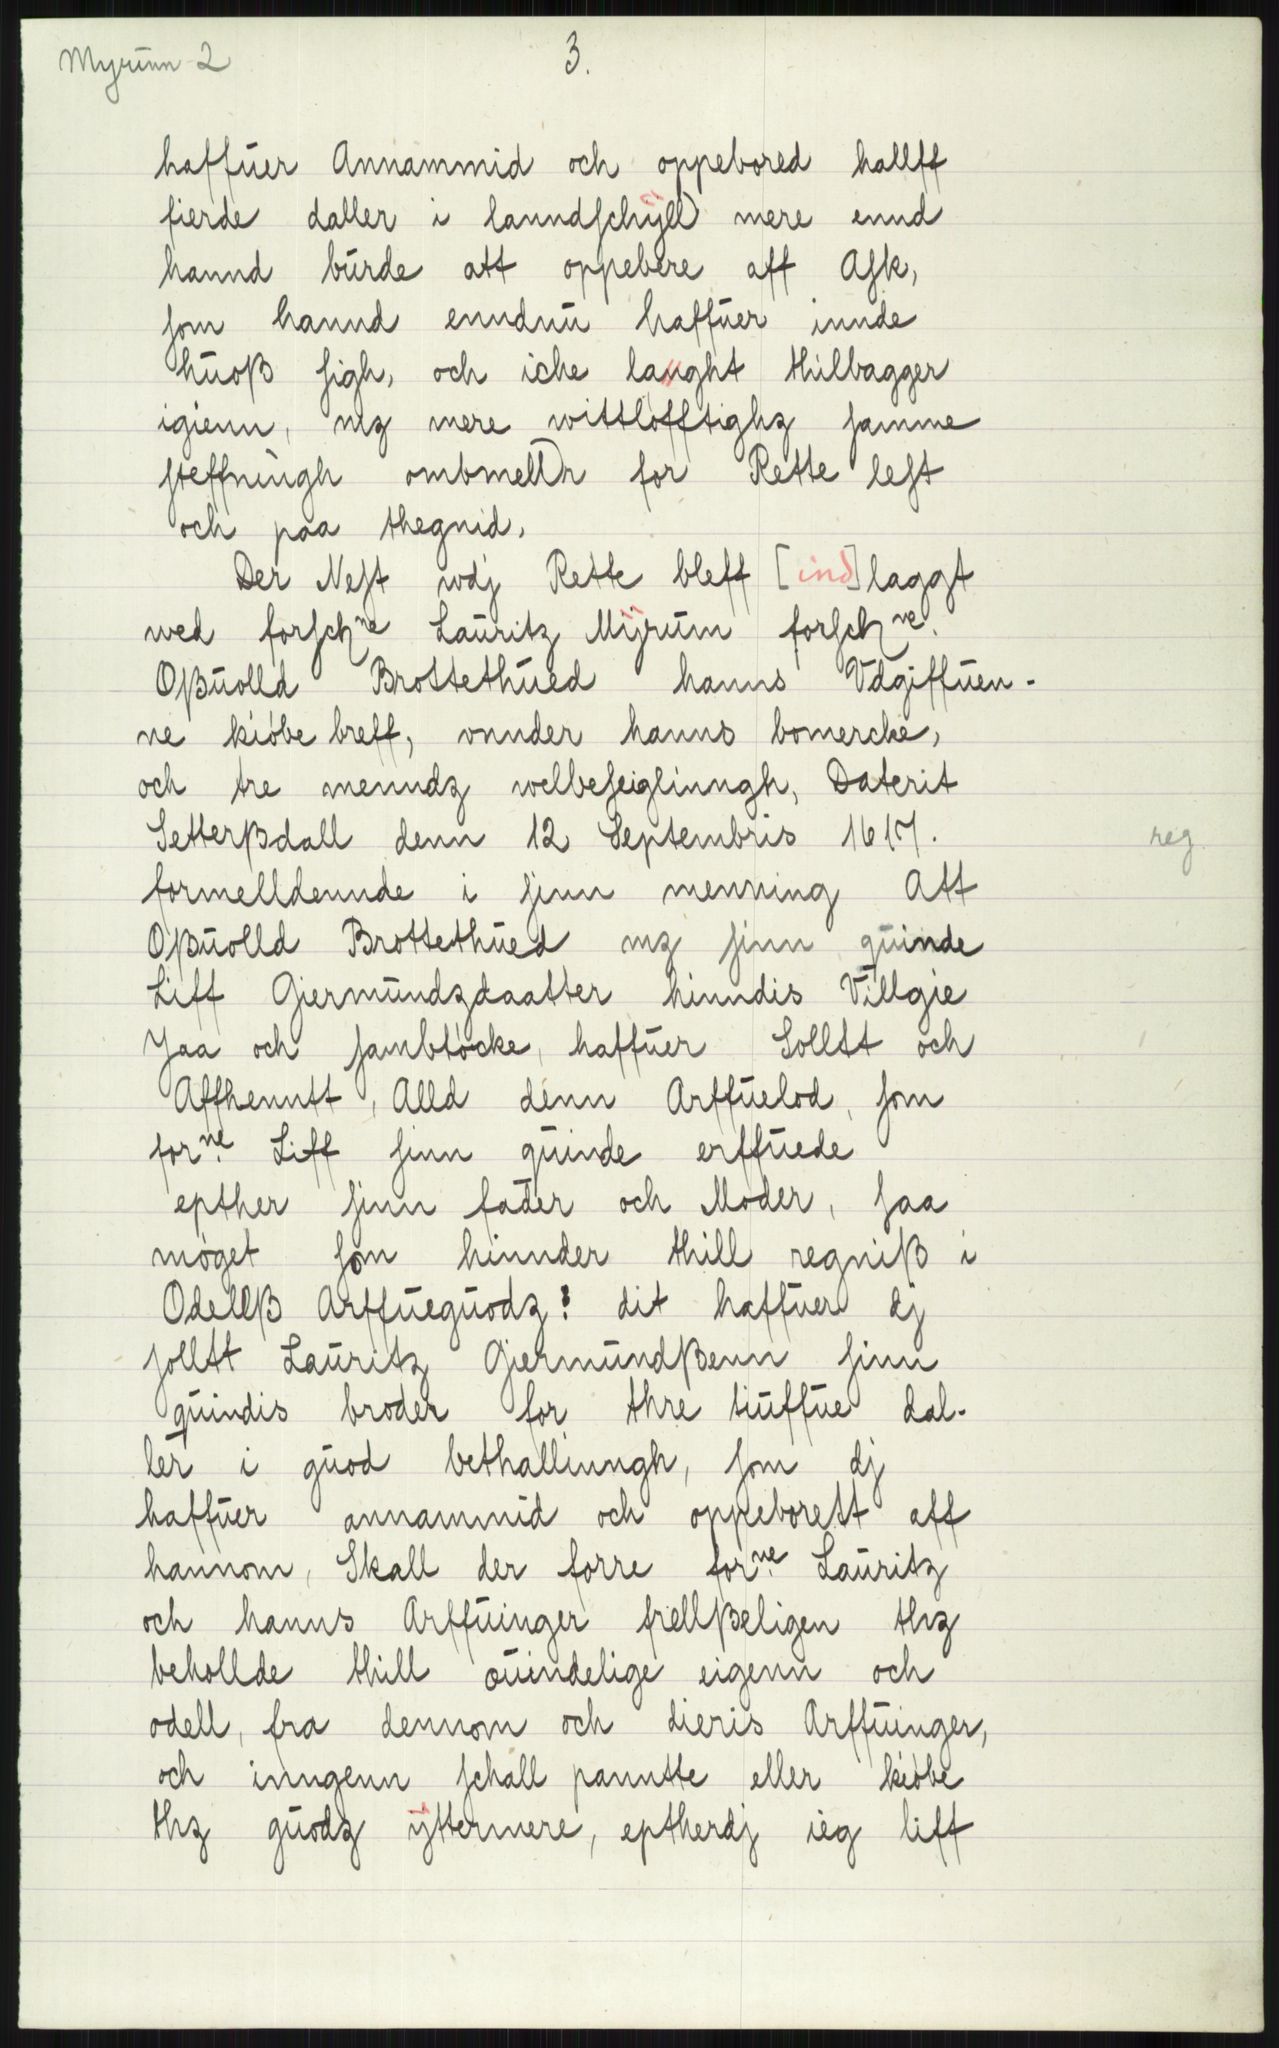 Myrum 2
3.
haffuer Annammid och oppebored hallff
fierde daller i lanndschÿlld mere ennd
hannd bürde att oppebere aff Ask,
som hannd enndnu haffuer innde
huoß sigh, och icke langht thilbagger
igienn, mz mere wittløfftighz samme
steffningh ombmelldr for Rette lest
och paa thegnid.
Der Nest wdj Rette bleff [ind]laggt
wed forschne Lauritz Mÿrum forschne.
Oßuolld Brottethued hanns Vdgiffuen-
ne kiøbe breff, vnnder hanns bomercke,
och tre menndz welbeseiglinngh, Daterit
Setterßdall denn 12 Septembris 1617.
reg
formelldennde i sinn menning Att
Oßuolld Brottethued mz sinn quinde
Liff Giermundzdaatter hinndis Villgie
Jaa och sambtøcke, haffuer Solltt och
Affhenntt, Alld denn Arffuelod, som
forne Liff sinn quinde erffuede
epther sinn fader och Moder, saa
møget som hinnder thill regniß i
Odellß Arffueguodz: dit haffuer dj
solltt Lauritz Giermundßenn sinn
quindis broder for thre tiuffue dal-
ler i guod bethallinngh, som dj
haffuer annammid och oppeborett aff
hannom, Skall der forre forne Lauritz
och hanns Arffuinger frellßeligen thz
behollde thill øuindelige eigenn och
odell, fra dennom och dieris Arffuinger,
och inngenn schall panntte eller kiøbe
thz guodz ÿttermere, eptherdj ieg liff